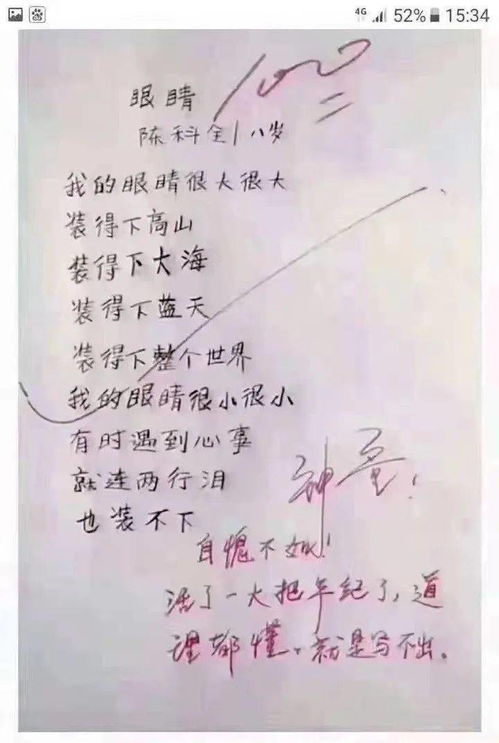 4G 52% 15:34
100
眼睛
陈科全 八岁
我的眼睛很大很大
装得下高山
装得下大海
装得下蓝天
装得下整个世界
我的眼睛很小很小
有时遇到心事
就连两行泪
也装不下
神童!
自愧不如!
活了一大把年纪了,道
理都懂。就是写不出。